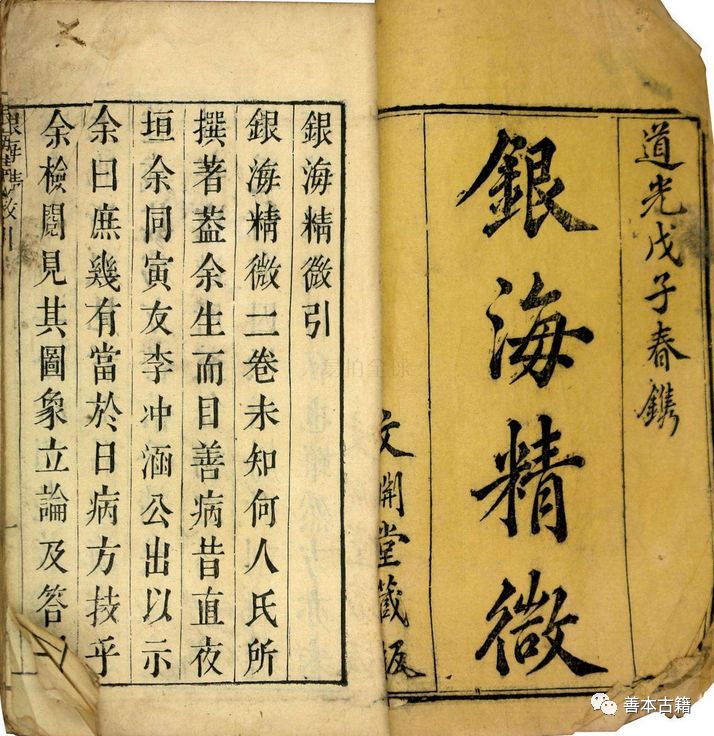 道光戊子春鐫
銀海精微
文開堂藏板
銀海精微引
銀海精微二卷未知何人氏所
撰著葢余生而目善病昔直夜
垣余同寅友李冲涵公出以示
余曰庶幾有當於日病方技乎
余檢閱見其圖象立論及答
銀海精微引
善本古籍